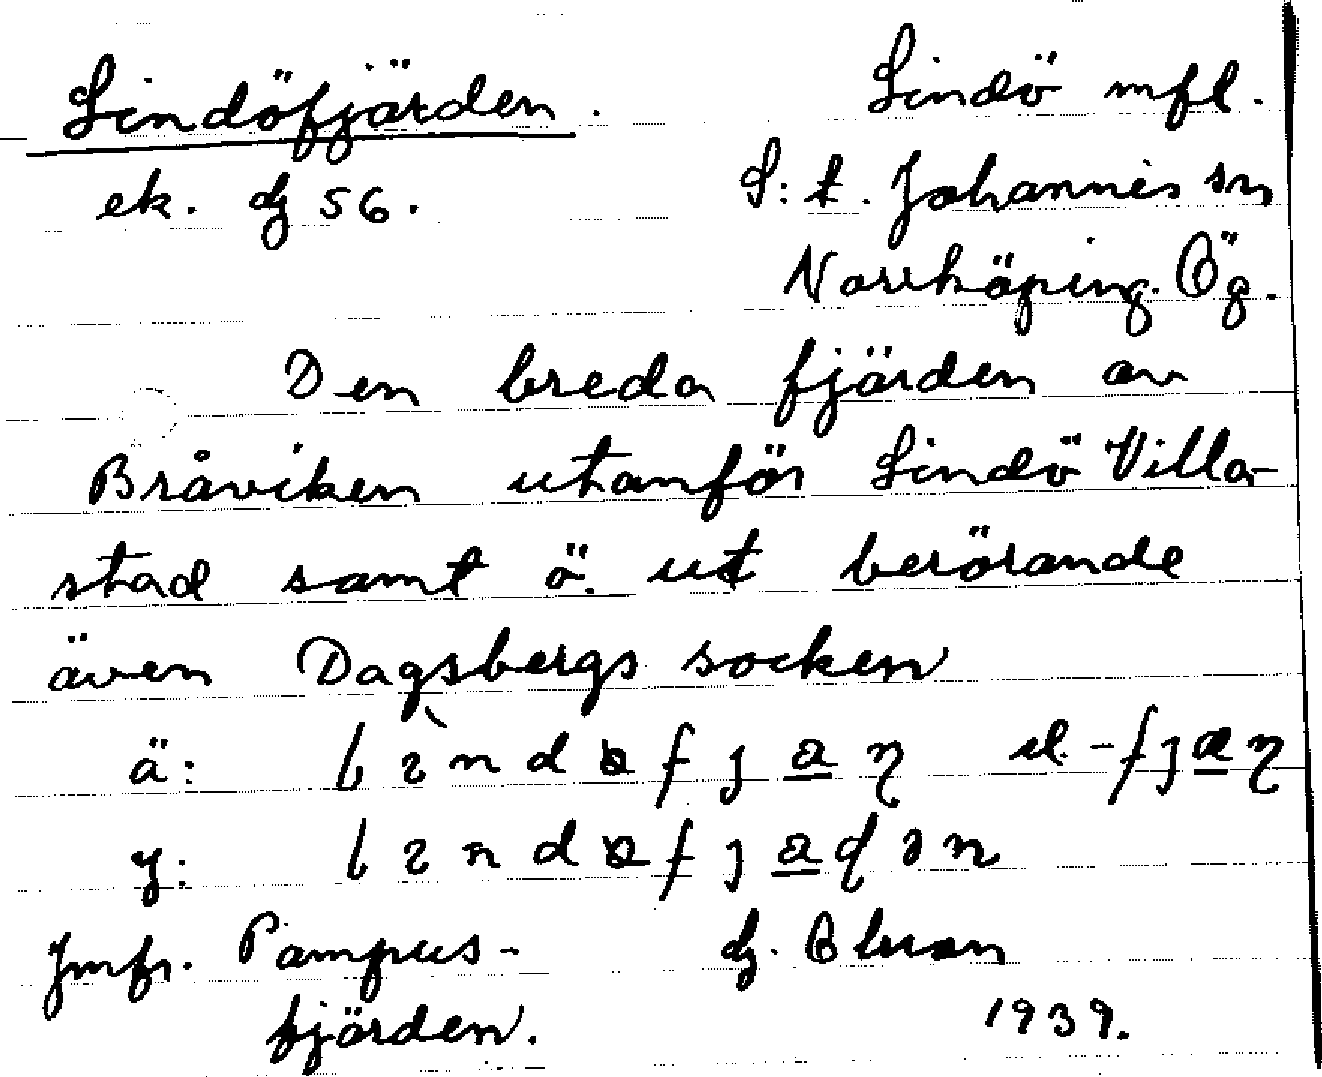 Lindöfjärden. Lindö mfl.
ek. dj 56. S:t. Johannis sn
Norrköping. Ög.
Den breda fjärden av
Bråviken utanför Lindö Villa-
stad samt ö. ut berörande
även Dagsbergs socken
ä:
y:
Jmfr. Pampus-
fjärden. 1939.